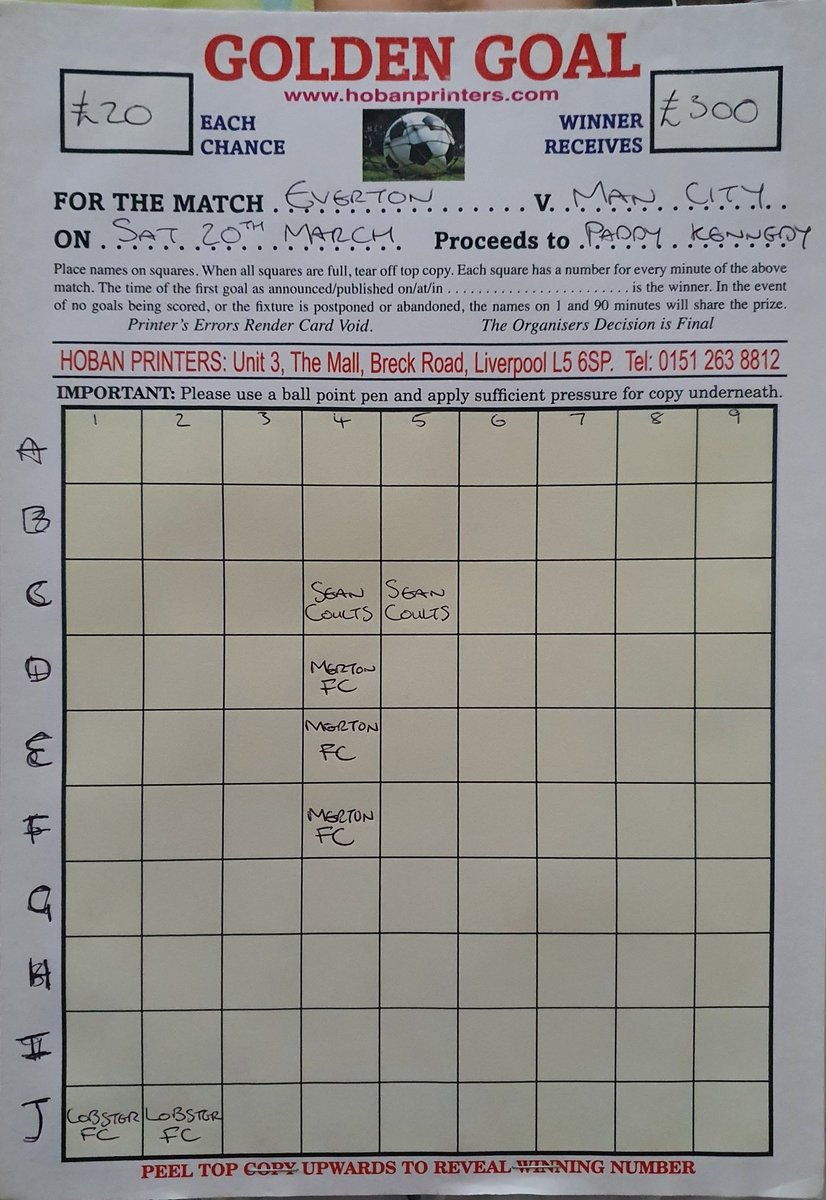 GOLDEN GOAL
www.hobanprinters.com
£20 EACH CHANCE WINNER RECEIVES £300
FOR THE MATCH EVERTON V. MAN CITY
ON SAT 20TH MARCH Proceeds to PADDY KENNEDY
Place names on squares. When all squares are full, tear off top copy. Each square has a number for every minute of the above
match. The time of the first goal as announced/published on/at/in . . . . . . . . . . . . . . . . . . . . . . . is the winner. In the event
of no goals being scored, or the fixture is postponed or abandoned, the names on 1 and 90 minutes will share the prize.
Printer's Errors Render Card Void. The Organisers Decision is Final
HOBAN PRINTERS: Unit 3, The Mall, Breck Road, Liverpool L5 6SP. Tel: 0151 263 8812
IMPORTANT: Please use a ball point pen and apply sufficient pressure for copy underneath.
1 2 3 4 5 6 7 8 9
A
B
C SEAN COULTS SEAN COULTS
D MERTON FC
E MERTON FC
F MERTON FC
G
H
I
J LOBSTER FC LOBSTER FC
PEEL TOP COPY UPWARDS TO REVEAL WINNING NUMBER